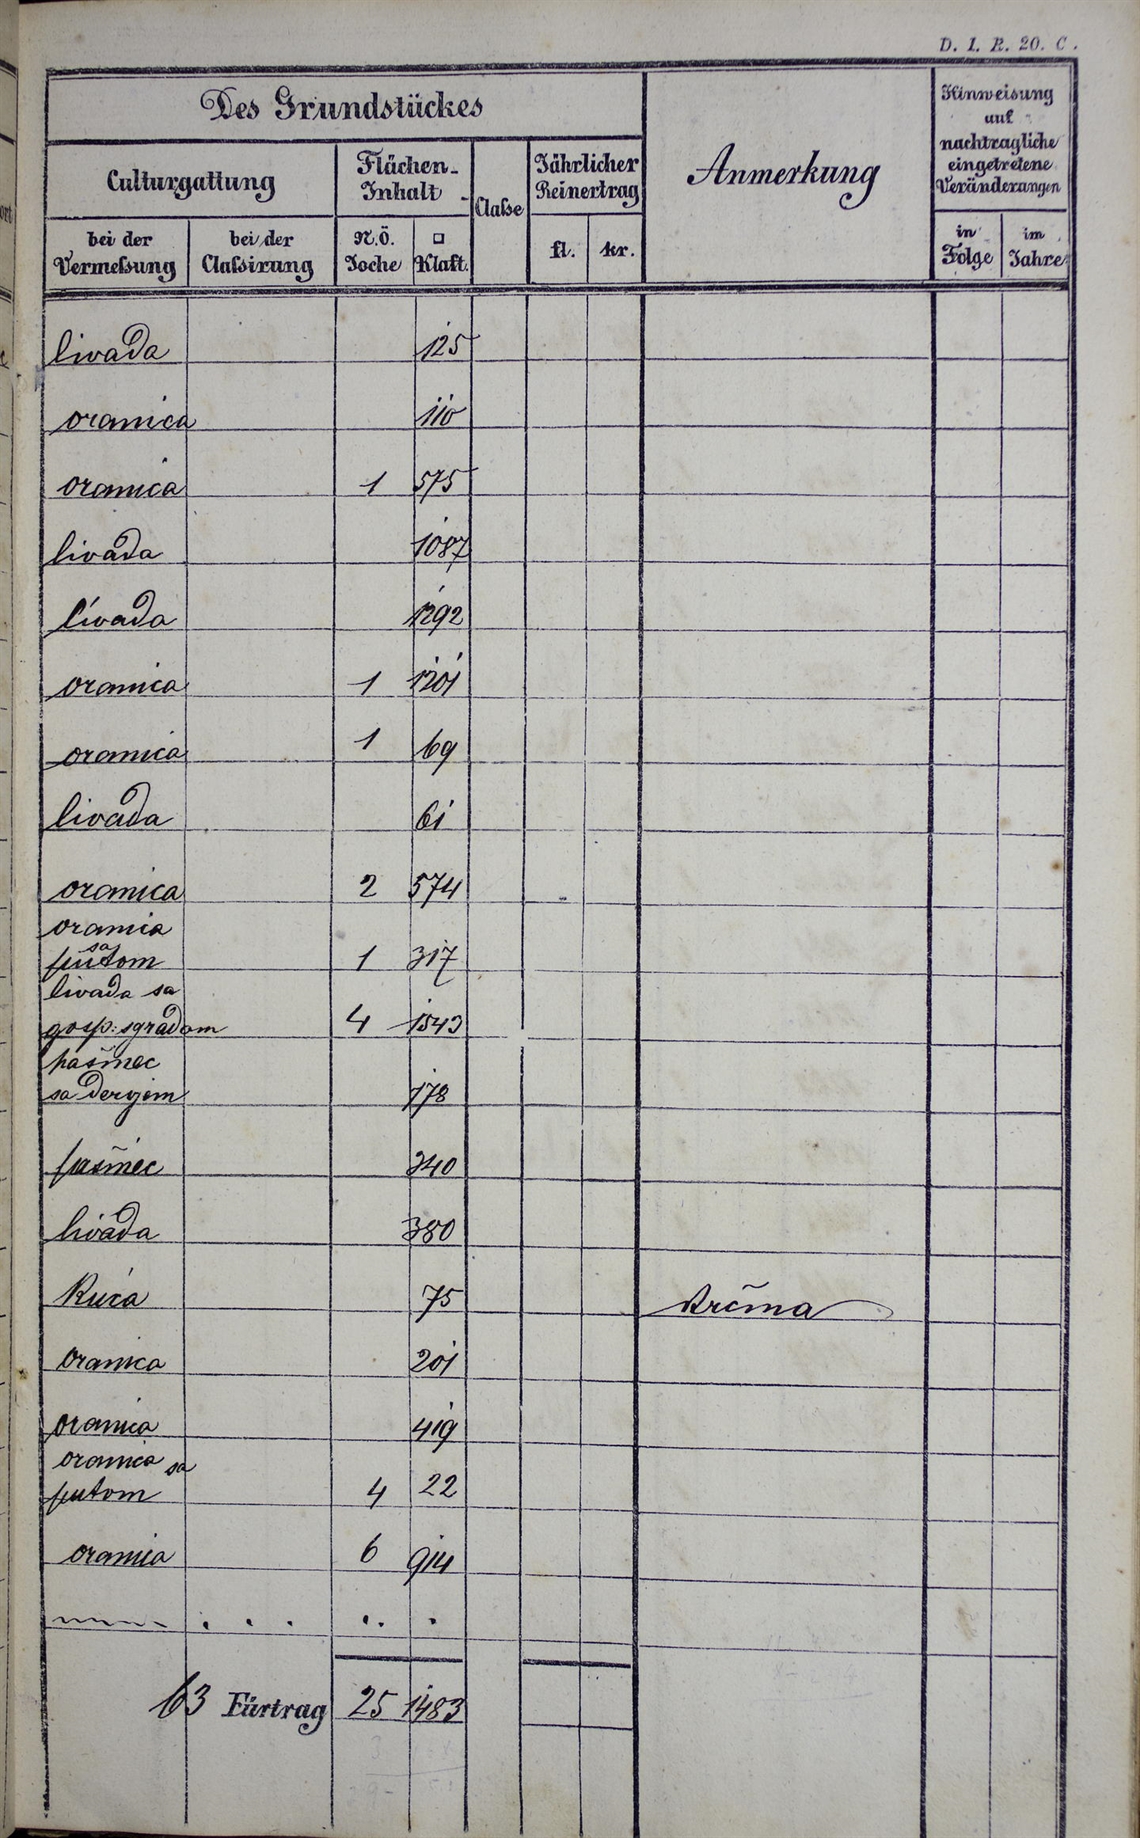 D. I. R. 20. C.
Des Grundstückes
Anmerkung
Hinweisung
auf
nachtragliche
eingetretene
Veränderungen
Culturgattung
Flächen-
Inhalt
Classe
Jährlicher
Reinertrag
bei der
Vermeßung
bei der
Claßirung
N.Ö.
Joche
□
Klaft.
fl.
kr.
in
Folge
im
Jahre
livada 125
oranica 110
oranica 1 575
livada 1087
livada 1292
oranica 1 1201
oranica 1 69
livada 61
oranica 2 574
oranica
sa
putom 1 317
livada sa
gosp: sgradom 4 1543
pašnec
sa dervjem 178
pašnec 340
livada 380
Kuća 75 krčma
oranica 201
oranica 419
oranica sa
putom 4 22
oranica 6 914
63 Fürtrag 25 1483